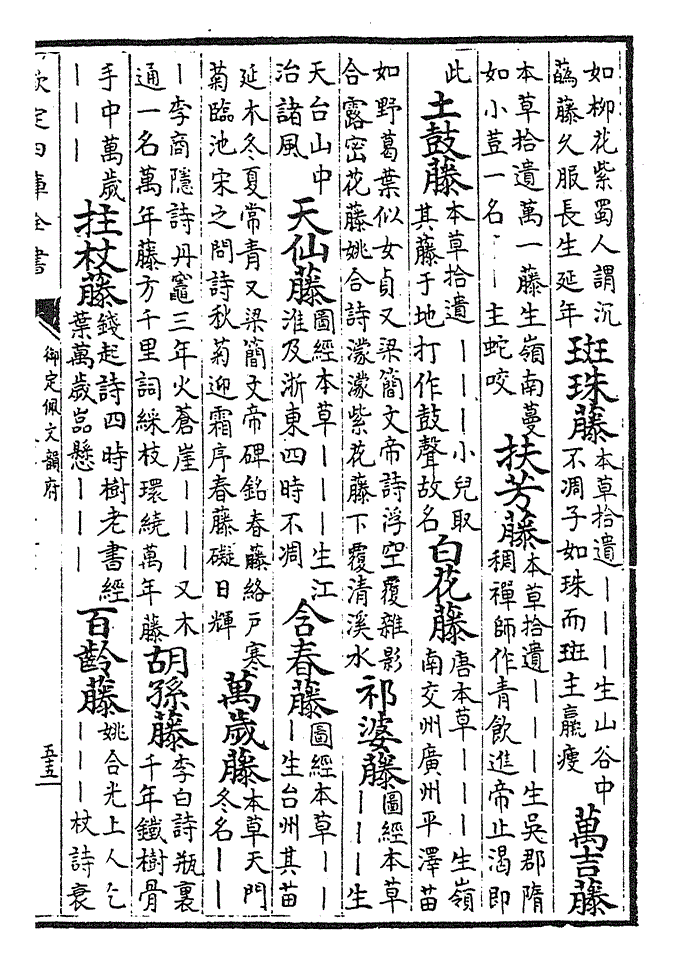 如柳花紫蜀人謂沉
藟藤久服長生延年
斑珠藤
本草拾遺｜｜｜生山谷中
不凋子如珠而斑主羸瘦
萬吉藤
本草拾遺萬一藤生嶺南蔓
如小荳一名｜｜｜主蛇咬
扶芳藤
本草拾遺｜｜｜生吳郡隋
稠禪師作青飲進帝止渴即
此
土鼓藤
本草拾遺｜｜｜小兒取
其藤于地打作鼓聲故名
白花藤
唐本草｜｜｜生嶺
南交州廣州平澤苗
如野葛葉似女貞又梁簡文帝詩浮空覆雜影
合露密花藤姚合詩濛濛紫花藤下覆清溪水
祁婆藤
圖經本草
｜｜｜生
天台山中
治諸風
天仙藤
圖經本草｜｜｜生江
淮及浙東四時不凋
含春藤
圖經本草｜｜
｜生台州其苗
延木冬夏常青又梁簡文帝碑銘春藤絡戶寒
菊臨池宋之問詩秋菊迎霜序春藤礙日輝
萬歲藤
本草天門
冬名｜｜
｜李商隱詩丹竈三年火蒼崖｜｜｜又木
通一名萬年藤方千里詞綵枝環繞萬年藤
胡孫藤
李白詩瓶裏
千年鐵樹骨
手中萬歲
｜｜｜
拄杖藤
錢起詩四時樹老書經
葉萬歲嵓懸｜｜｜
百齡藤
姚合光上人乞
｜｜｜杖詩衰
欽定四庫全書
御定佩文韻府
五五